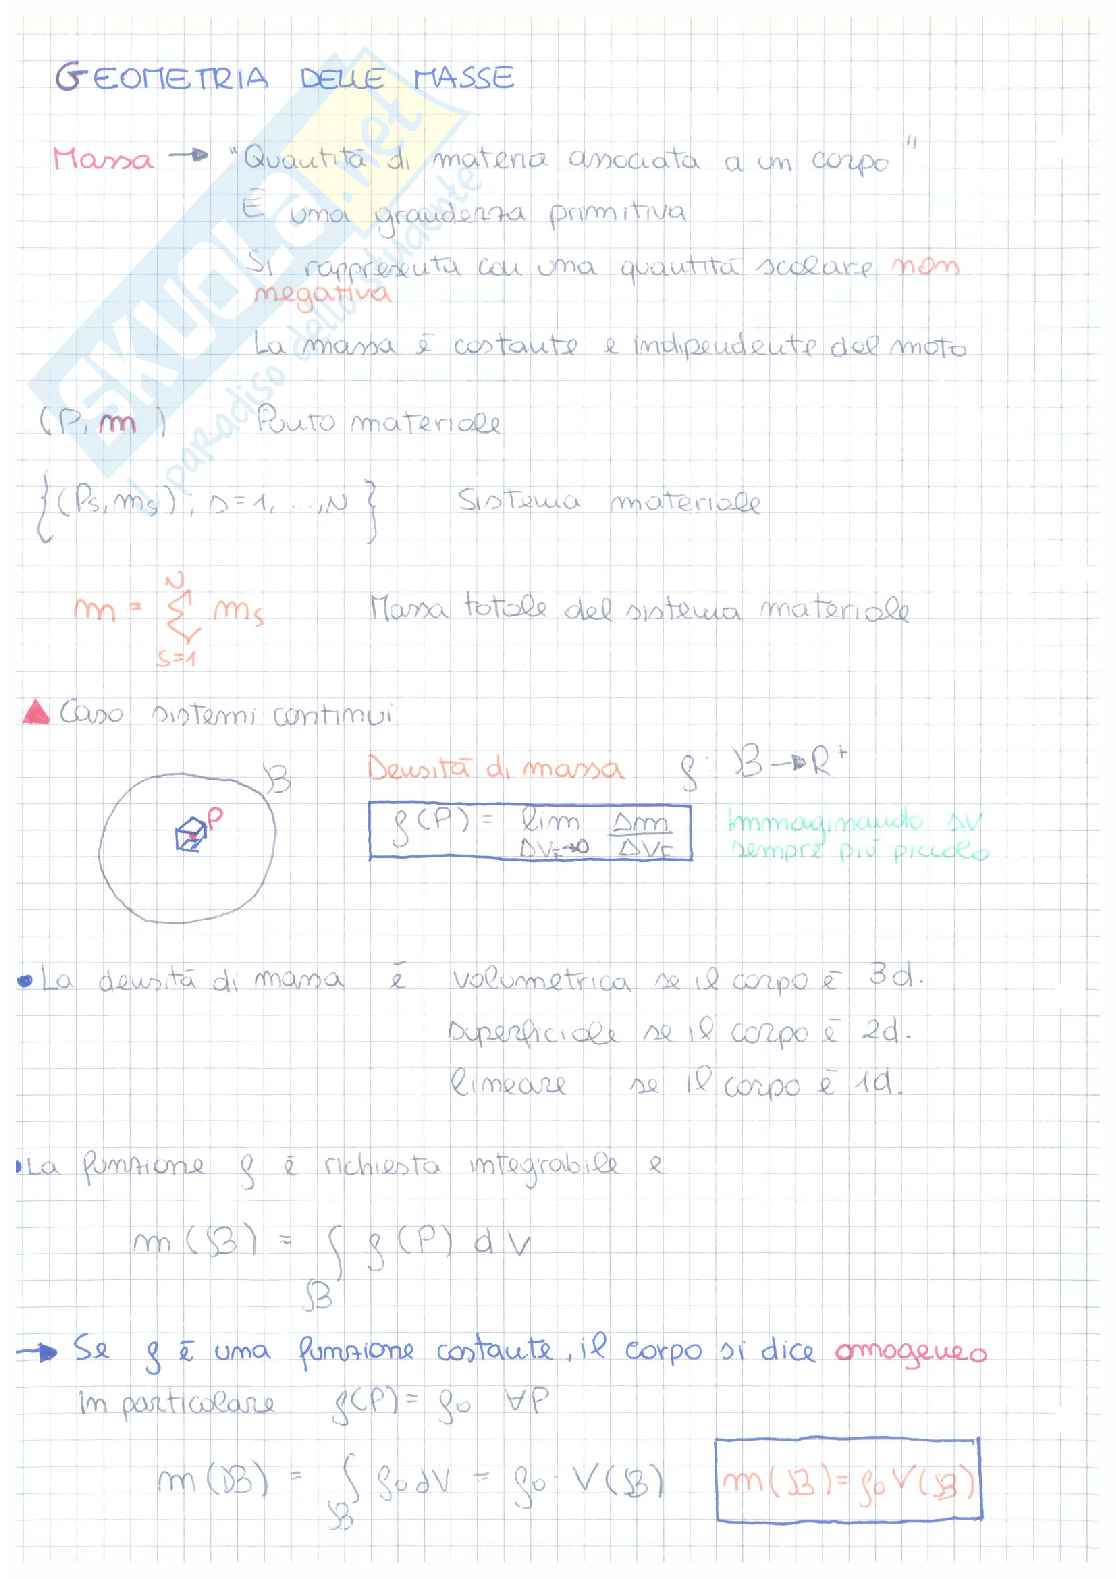 GEOMETRIA DELLE MASSE
Massa → "Quantità di materia associata a un corpo"
È una grandezza primitiva
Si rappresenta con una quantità scalare non
negativa
La massa è costante e indipendente dal moto
(P, m) Punto materiale
{(Ps, ms), s=1, ..., N} Sistema materiale
m = ∑ ms Massa totale del sistema materiale
N
s=1
▲ Caso sistemi continui
B
P
Densità di massa ρ: B → R⁺
ρ(P) = lim Δm / ΔVε
ΔVε→0
Immaginando ΔV
sempre più piccolo
• La densità di massa è volumetrica se il corpo è 3d.
superficiale se il corpo è 2d.
lineare se il corpo è 1d.
• La funzione ρ è richiesta integrabile e
m(B) = ∫ ρ(P) dV
B
→ Se ρ è una funzione costante, il corpo si dice omogeneo
In particolare ρ(P) = ρ₀ ∀P
m(B) = ∫ ρ₀ dV = ρ₀ · V(B) m(B) = ρ₀ V(B)
B
SKUOLA.net
il paradiso dello studente